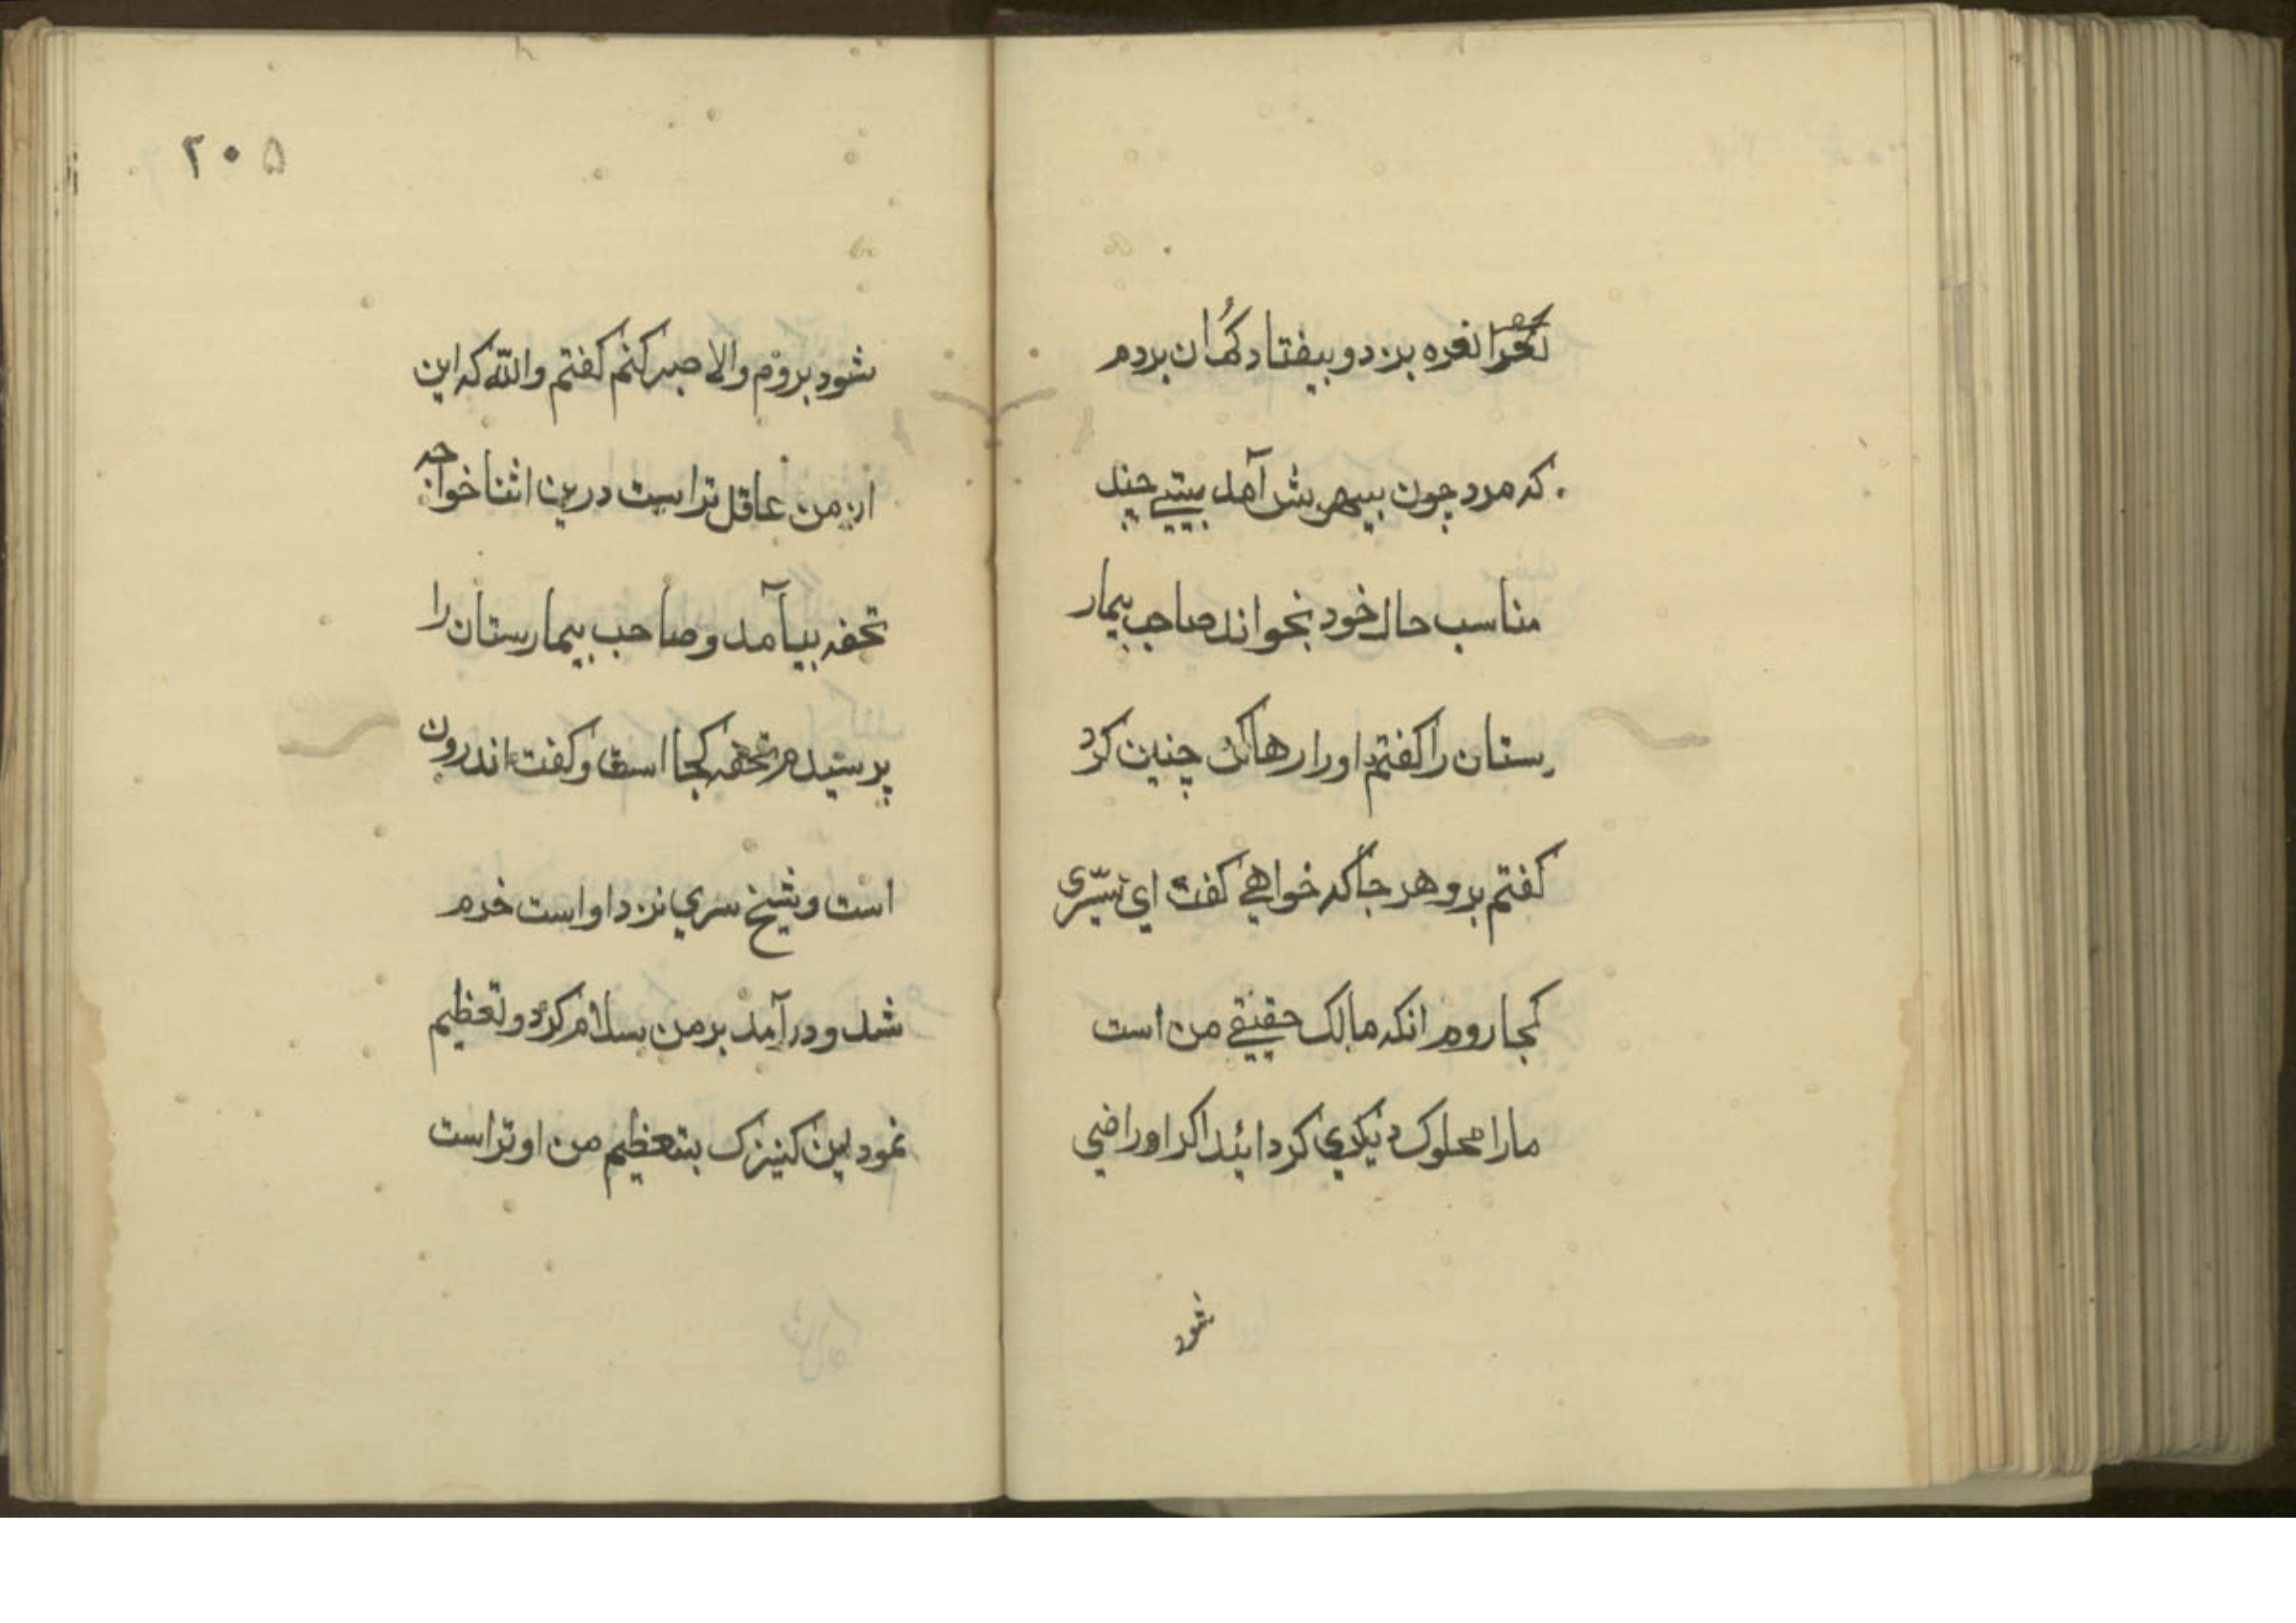 نعره بزد و بیفتاد گمان بردم
که مرد چون بیهوش آمد بیتے چند
مناسب حال خود بخواند صاحب بیمار
ستان را کفتم او را رها کن چنین کرد
کفتم برو هر جا که خواهے کفت ای سرّی
کجا روم انکه مالک حقیقے من است
مارا مملوک دیکری کردا ئید اکر او راضی
شود
۲۰۵
شود بروم والا صبر کنم کفتم والله که این
از من عاقل تر است درین اثنا خواجه
تحفه بیآمد و صاحب بیمارستان را
پرسیدم تحفه کجا است و کفت اندرون
است و شیخ سري نزد او است خرم
شد و درآمد بر من سلام کرد و تعظیم
نمود این کنیزک بتعظیم من او تر است